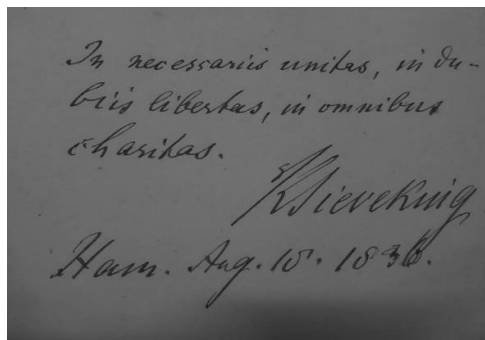 In necessariis unitas, in du-
biis libertas, in omnibus
charitas.
KSieveking
Ham. Aug. 18. 1836.